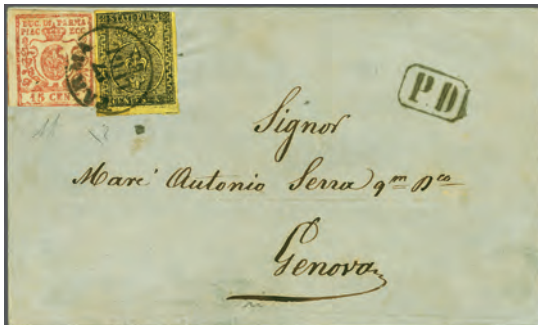 DUC. DI PARMA
PIAC. ECC.
15 CENT
STATI PARM
PARMA
P.D.
Signor
Marc' Antonio Serra qm Dco
Genova